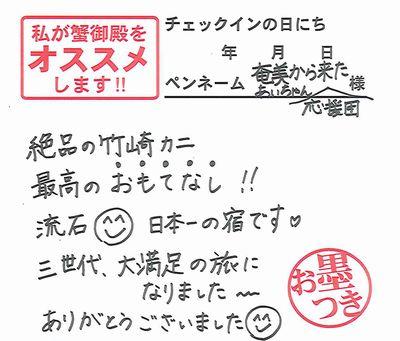 私が蟹御殿を
オススメ
します!!
チェックインの日にち
年 月 日
ペンネーム 奄美から来た 様
あいちゃん
応援団
絶品の竹崎カニ
最高の おもてなし !!
流石 日本一の宿です♡
三世代、大満足の旅に
なりました〜
ありがとうございました
お墨つき